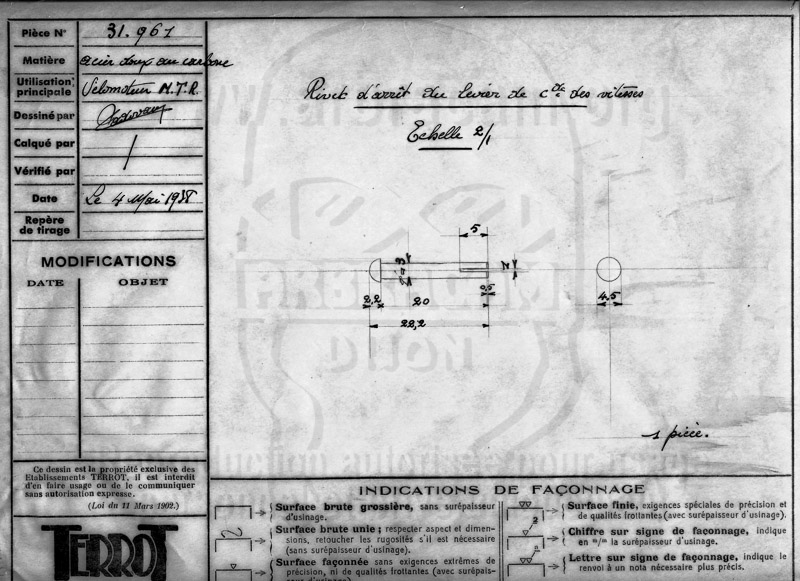 Pièce N° 31.961
Matière acier doux au carbone
Utilisation principale Vélomoteur M.T.R.
Dessiné par
Calqué par /
Vérifié par
Date Le 4 Mai 1938
Repère de tirage
MODIFICATIONS
DATE OBJET
Ce dessin est la propriété exclusive des
Etablissements TERROT, il est interdit
d'en faire usage ou de le communiquer
sans autorisation expresse.
(Loi du 11 Mars 1902.)
TERROT
Rivet d'arrêt du levier de cde des vitesses
Echelle 2/1
5
3
1
2,2
20
0,5
22,2
4,5
1 pièce.
INDICATIONS DE FAÇONNAGE
Surface brute grossière, sans surépaisseur
d'usinage.
Surface brute unie ; respecter aspect et dimen-
sions, retoucher les rugosités s'il est nécessaire
(sans surépaisseur d'usinage).
Surface façonnée sans exigences extrêmes de
précision, ni de qualités frottantes (avec surépais-
Surface finie, exigences spéciales de précision et
de qualités frottantes (avec surépaisseur d'usinage).
2
Chiffre sur signe de façonnage, indique
en m/m la surépaisseur d'usinage.
n
Lettre sur signe de façonnage, indique le
renvoi à un nota nécessaire plus précis.